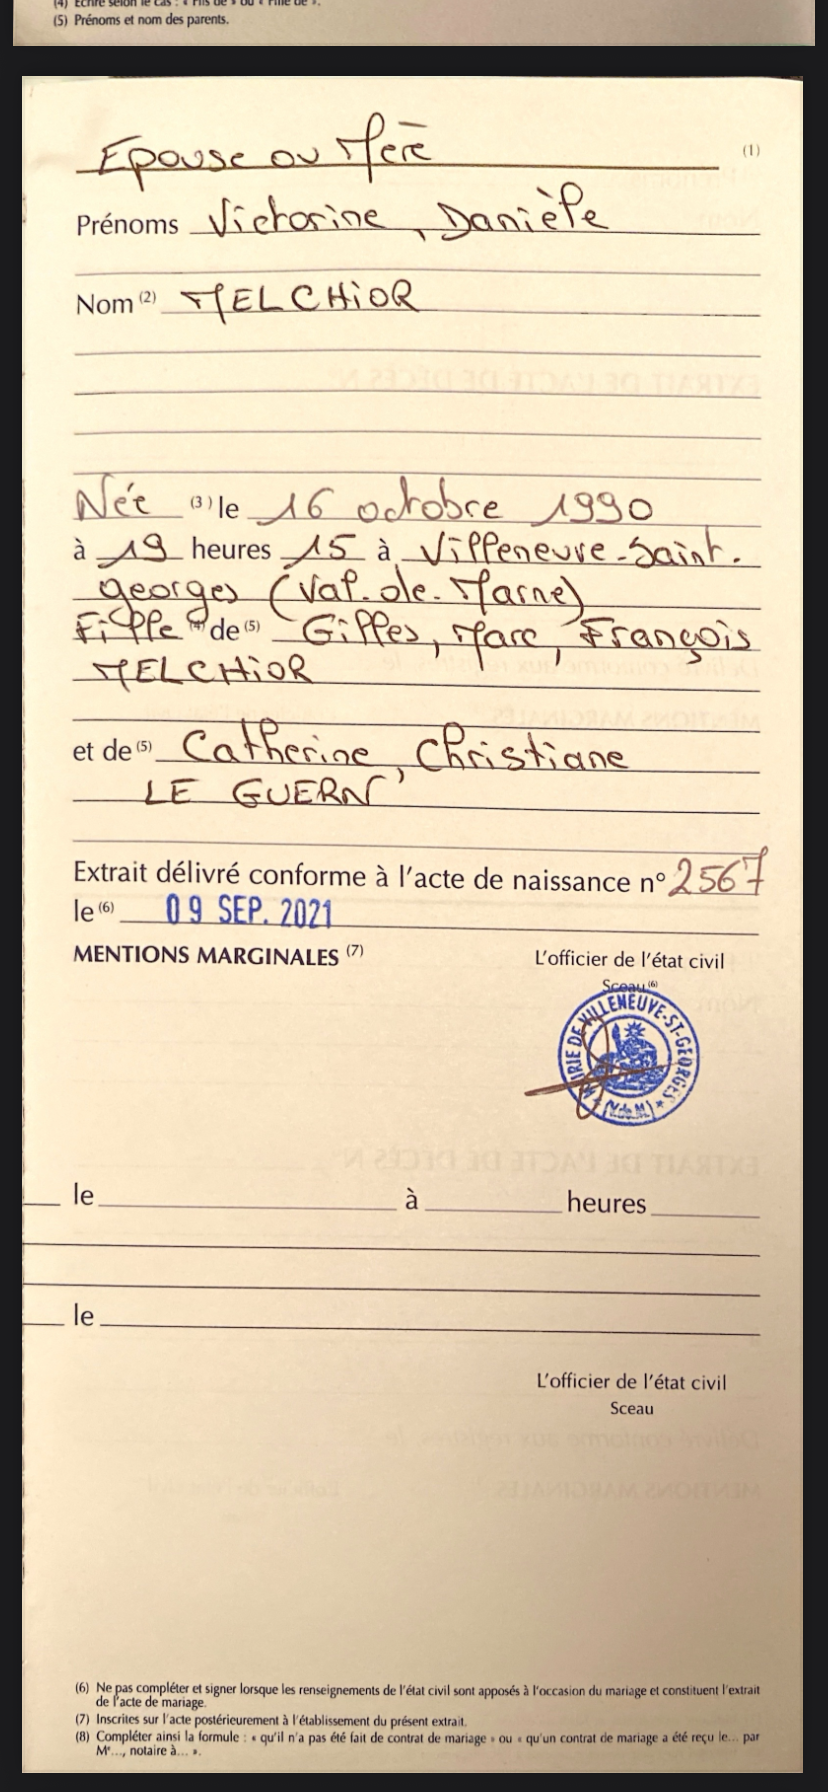 (4) Ecrire selon le cas : « Fils de » ou « Fille de ».
(5) Prénoms et nom des parents.
Epouse ou Mère (1)
Prénoms Victorine, Danièle
Nom (2) MELCHiOR
Née (3) le 16 octobre 1990
à 19 heures 15 à Villeneuve-Saint-
georges (Val-de-Marne)
Fille (4) de (5) Gilles, Marc, François
MELCHiOR
et de (5) Catherine, Christiane
LE GUERN
Extrait délivré conforme à l'acte de naissance n° 2567
le (6) 09 SEP. 2021
MENTIONS MARGINALES (7) L'officier de l'état civil
Sceau (6)
MAIRIE DE VILLENEUVE-ST-GEORGES
(V.de.M.)
EXTRAIT DE L'ACTE DE DÉCÈS N°
le à heures
le
L'officier de l'état civil
Sceau
(6) Ne pas compléter et signer lorsque les renseignements de l'état civil sont apposés à l'occasion du mariage et constituent l'extrait
de l'acte de mariage.
(7) Inscrites sur l'acte postérieurement à l'établissement du présent extrait.
(8) Compléter ainsi la formule : « qu'il n'a pas été fait de contrat de mariage » ou « qu'un contrat de mariage a été reçu le... par
Me..., notaire à... ».